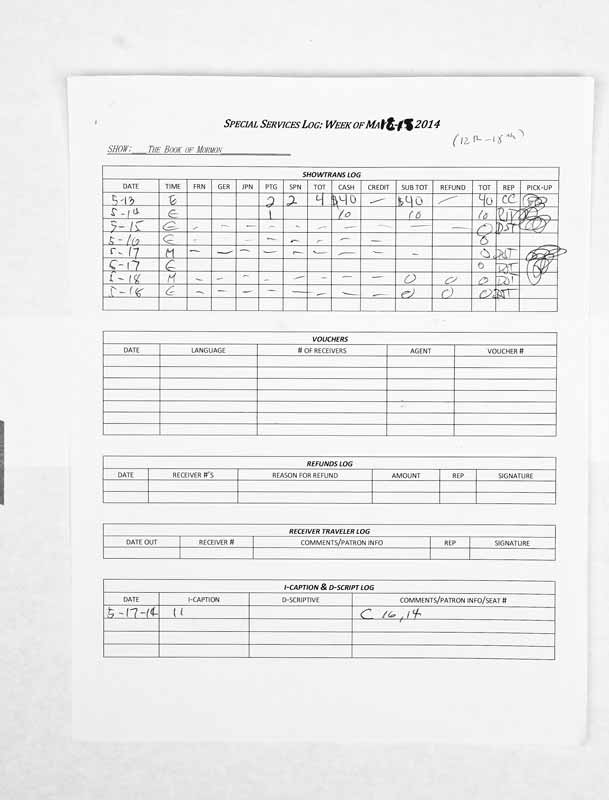 SPECIAL SERVICES LOG: WEEK OF MA 18-18 2014
(12th-18th)
SHOW: THE BOOK OF MORMON
SHOWTRANS LOG
DATE TIME FRN GER JPN PTG SPN TOT CASH CREDIT SUB TOT REFUND TOT REP PICK-UP
5-13 E 2 2 4 $40 — $40 — 40 CC
5-14 E 1 10 10 10
5-15 E - - - - - - - - - - 0 DST
5-16 E - - - - - - - - 0
5-17 M - - - - - - - - - 0 DST
5-17 E 0 DST
5-18 M - - - - - - - - 0 0 0 DST
5-18 E - - - - - - - - 0 0 0 DST
VOUCHERS
DATE LANGUAGE # OF RECEIVERS AGENT VOUCHER #
REFUNDS LOG
DATE RECEIVER #'S REASON FOR REFUND AMOUNT REP SIGNATURE
RECEIVER TRAVELER LOG
DATE OUT RECEIVER # COMMENTS/PATRON INFO REP SIGNATURE
I-CAPTION & D-SCRIPT LOG
DATE I-CAPTION D-SCRIPTIVE COMMENTS/PATRON INFO/SEAT #
5-17-14 11 C 16,14